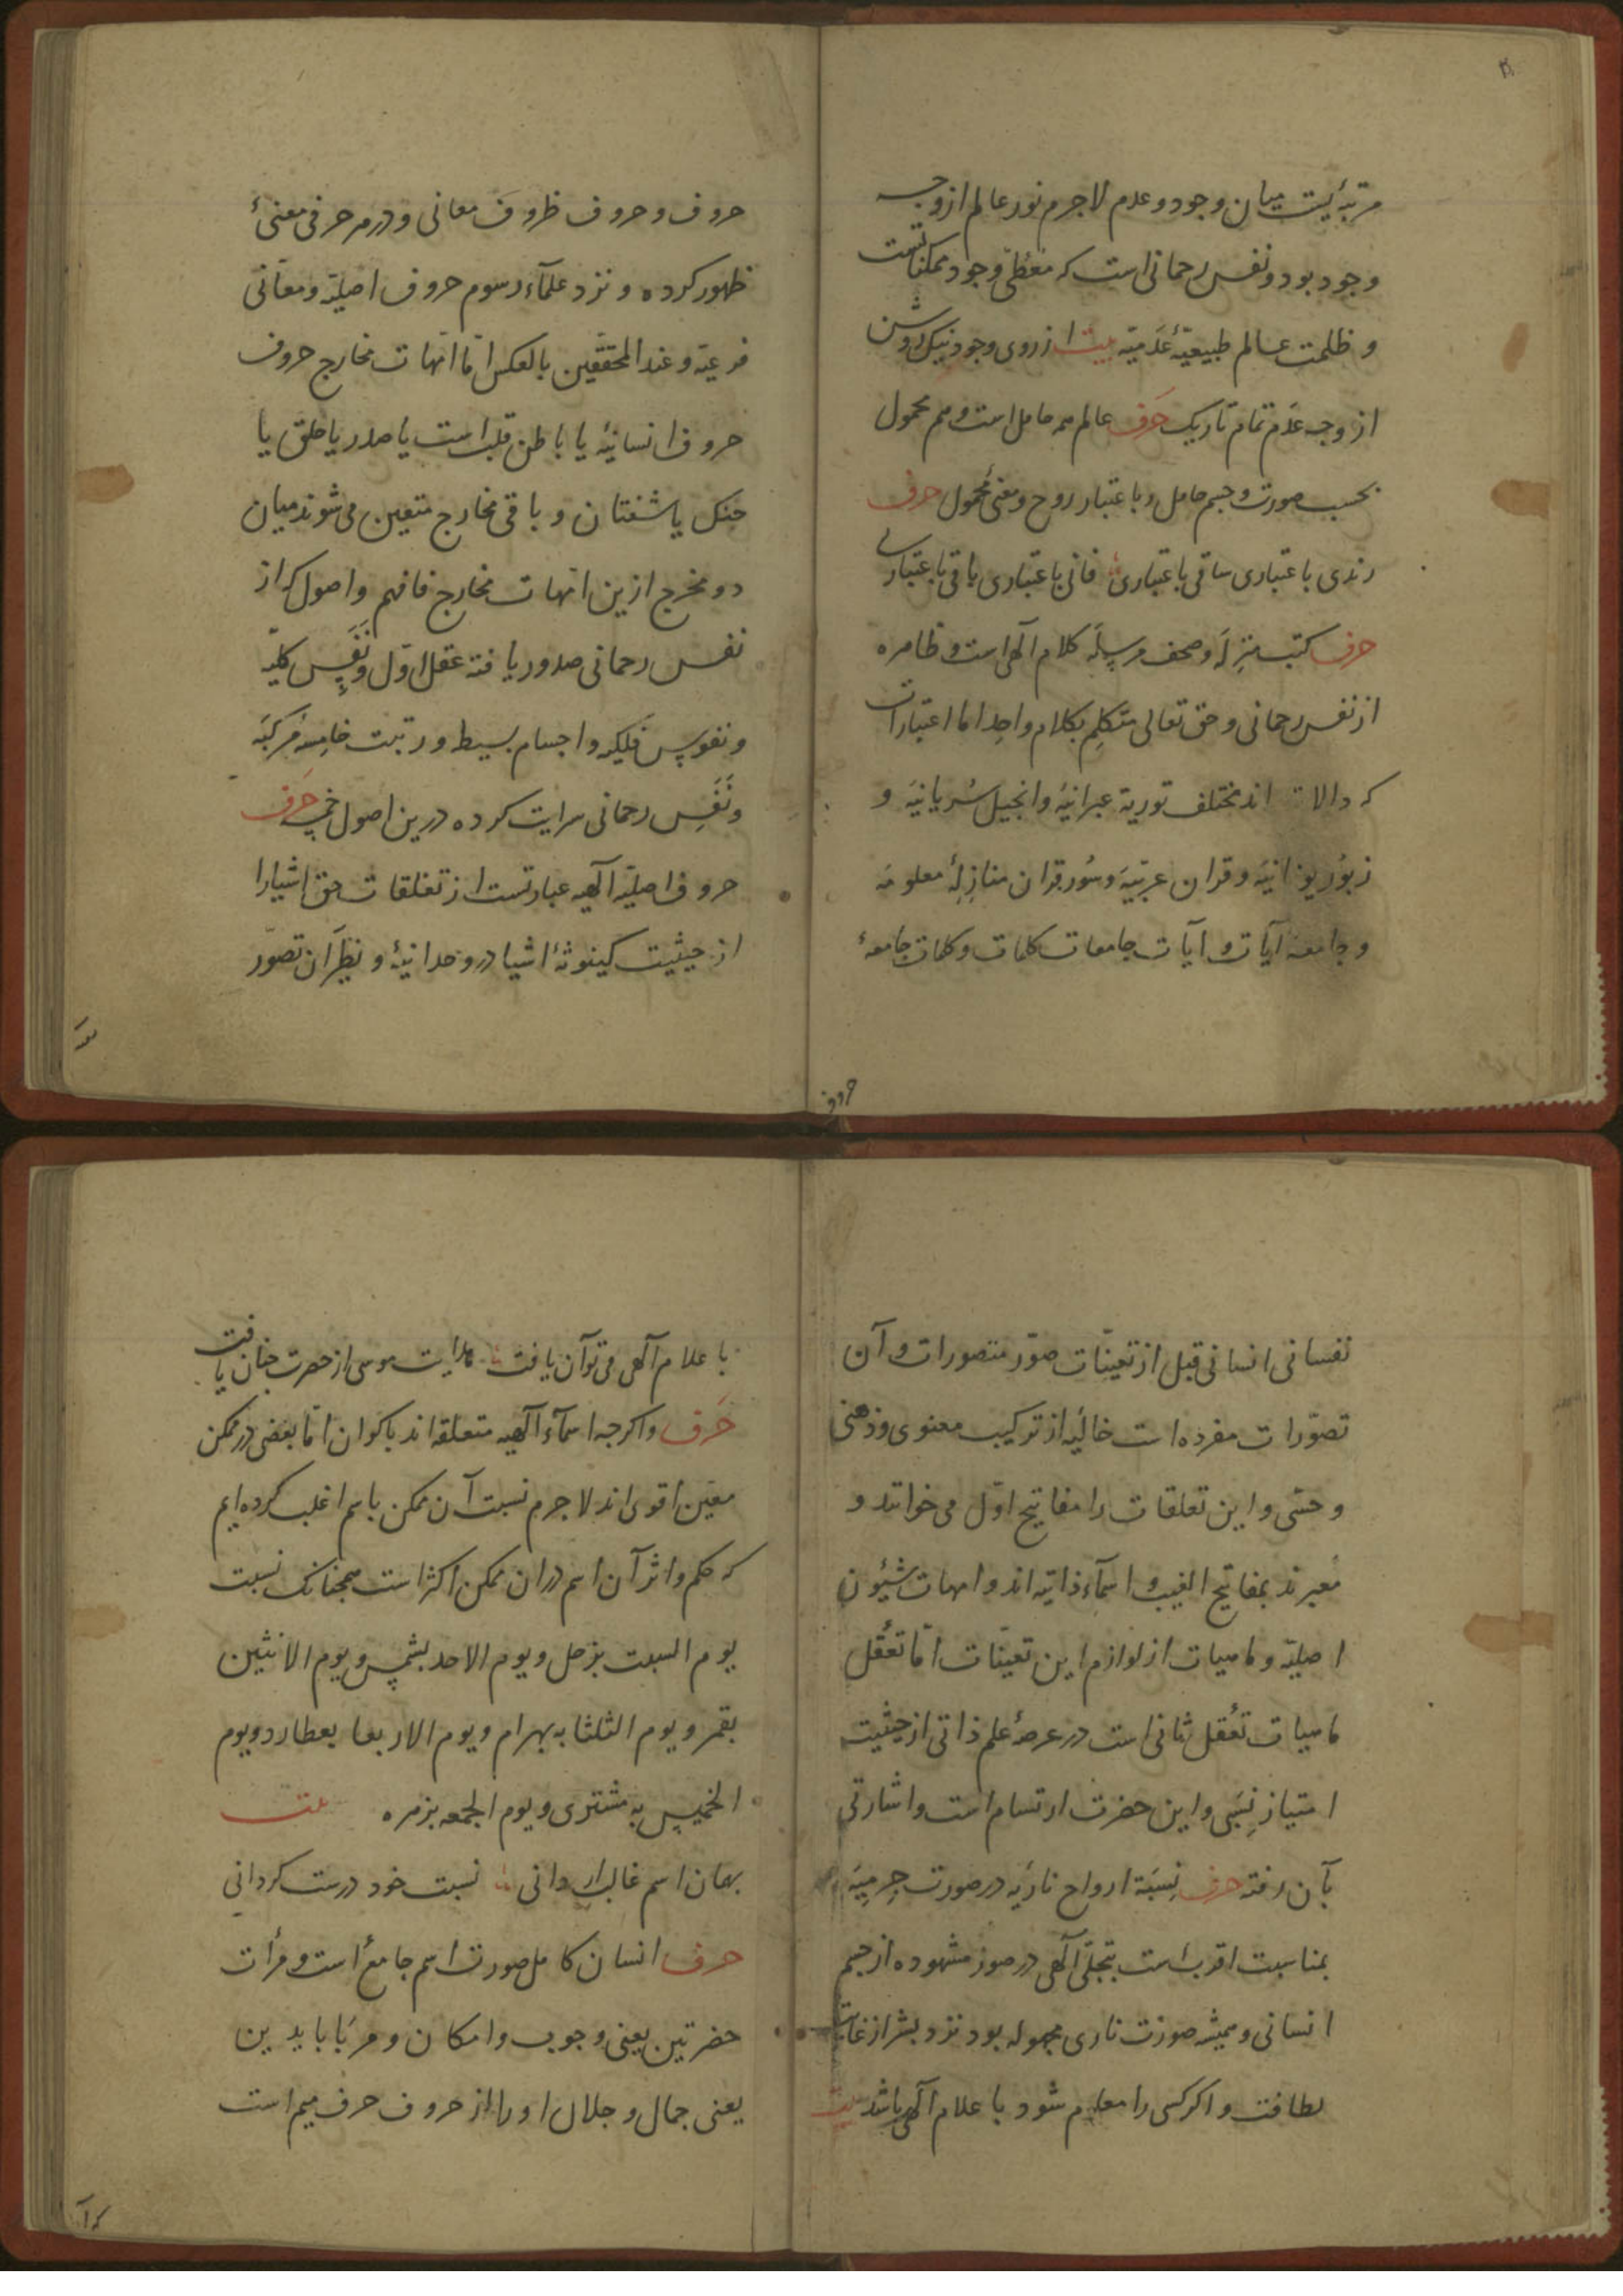 مرتبه‌ئیست میان وجود و عدم لاجرم نور عالم از وجه
وجود بود و نفس رحمانی است که معطی وجود ممکناتست
و ظلمت عالم طبیعیّهٔ عدمیّه بیت از روی وجود نیک روشن
از وجه عدم تمام تاریک حرف عالم هم حامل است و هم محمول
بحسب صورت و جسم حامل و باعتبار روح و معنی محمول حرف
رندی باعتباری ساقی باعتباری فانی باعتباری باقی باعتباری
حرف کتب منزله و صحف مرسله کلام آلهی است و ظاهره
از نفس رحمانی و حق تعالی متکلم بکلام واحد اما اعتبارات
که دالات اند مختلف توریة عبرانیّه و انجیل سُریانیّه و
زبور یونانیّه و قران عربیّه و سُور قران منازلهٔ معلومه
و جامعهٔ آیات و آیات جامعات کلمات و کلمات جامعهٔ
حروف
حروف و حروف ظروف معانی و در هر حرفی معنیٔ
ظهور کرده و نزد علمآء رسوم حروف اصلیّه و معانی
فرعیّه و عند المحققین بالعکس امّا امّهات مخارج حروف
حروف انسانیّه یا باطن قلب است یا صدر یا حلق یا
حنک یا شفتان و باقی مخارج متعین می شوند میان
دو مخرج ازین امّهات مخارج فافهم و اصول که از
نفس رحمانی صدور یافته عقل اوّل و نفس کلیّه
و نفوس فلکیه و اجسام بسیط و رتبت خامسه مرکبه
و نَفَس رحمانی سرایت کرده درین اصول خمسه حرف
حروف اصلیّه آلهیه عبارتست از تعلقات حق اشیارا
از حیثیت کینونهٔ اشیا در وحدانیّهٔ و نظیر آن تصوّر
نفسانی انسانی قبل از تعیّنات صوَر متصورات و آن
تصوّرات مفرده است خالیه از ترکیب معنوی و ذهنی
و حسّی و این تعلقات را مفاتیح اوّل می خوانند و
معبرند بمفاتیح الغیب و اسمآء ذاتیّه اند و امهات شیُون
اصلیّه و ماهیات از لوازم این تعیّنات امّا تعقّل
ماهیات تعقّل ثانی است در عرصهٔ علم ذاتی از حیثیت
امتیاز نِسَبی و این حضرت ارتسام است و اشارتی
بآن رفته حرف نسبَة ارواح ناریّه در صورت جرمیّه
بمناسبت اقرب است بتجلّی آلهی در صوَر مشهوده از جسم
انسانی و همیشه صورت ناری مجهوله بود نزد بشر از غایت
لطافت و اگر کسی را معلوم شود باعلام آلهی باشد بیت
باعلام آلهی می توان یافت هدایت موسی از حضرت چنان یافت
حرف و اگرچه اسمآء آلهیه متعلقه اند باکوان امّا بعضی در ممکن
معیّن اقوی اند لاجرم نسبت آن ممکن باسم اغلب کرده ایم
که حکم و اثر آن اسم در ان ممکن اکثر است همچنانک نسبت
یوم السبت بزحل و یوم الاحد بشمس و یوم الاثنین
بقمر و یوم الثلثا به بهرام و یوم الاربعا بعطارد و یوم
الخمیس به مشتری و یوم الجمعه بزهره بیت
بهمان اسم غالب ار دانی نسبت خود درست گردانی
حرف انسان کامل صورت اسم جامع است و مرأت
حضرتین یعنی وجوب و امکان و مربّا بایدین
یعنی جمال و جلال او را از حروف حرف میم است